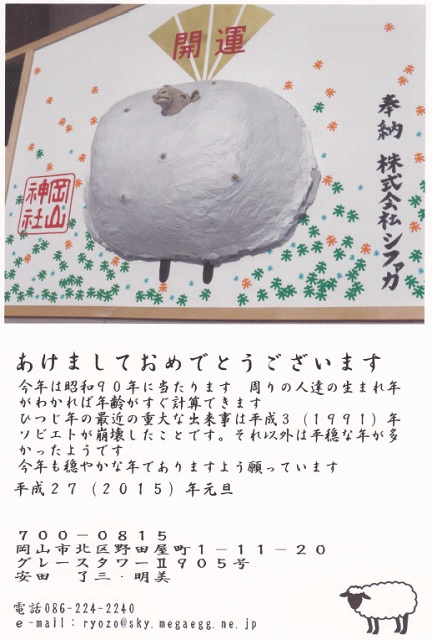 開運
奉納 株式会社シファカ
岡山
神社
あけましておめでとうございます
今年は昭和90年に当たります 周りの人達の生まれ年
がわかれば年齢がすぐ計算できます
ひつじ年の最近の重大な出来事は平成3(1991)年
ソビエトが崩壊したことです。それ以外は平穏な年が多
かったようです
今年も穏やかな年でありますよう願っています
平成27(2015)年元旦
700-0815
岡山市北区野田屋町1-11-20
グレースタワーⅡ905号
安田 了三・明美
電話086-224-2240
e-mail:ryozo@sky.megaegg.ne.jp